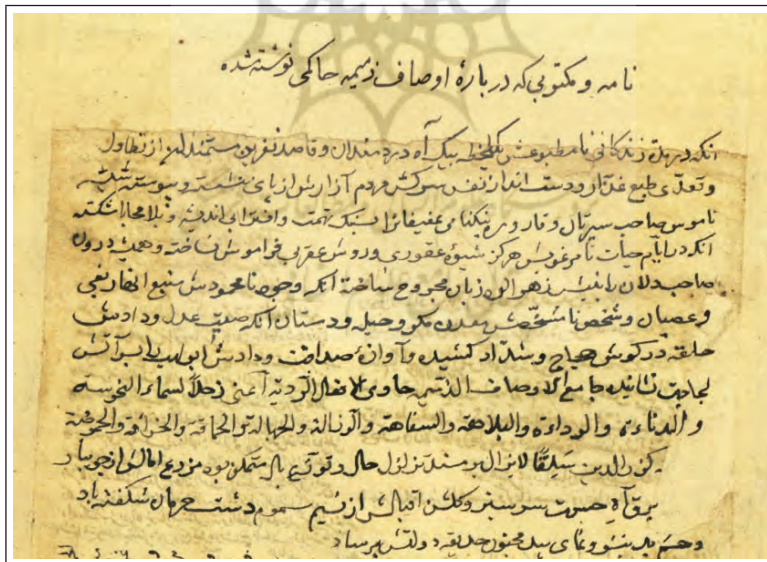 نامه و مکتوبی که درباره اوصاف ذمیمه حاکمی نوشته شده
آنکه در مدة زندگانی نامطبوعش یک لحظه بیک آه دردمندان و قاصد نفرین مستمندان از تطاول
و تعدّی طبع غدّار و دست انداز نفس سرکش مردم آزارش از پای ننشسته و پیوسته شیشه
ناموس صاحب سیرتان و قاروره نیکنامی عفیفانرا بسنک تهمت و افترا بی اندیشه و بلا محابا شکسته
آنکه در ایام حیات نامرغوبش هرگز شیوهٔ عقوری و روش عقربی فراموش نساخته و همیشه درون
صاحبدلان را بنیش زهرآلود زبان مجروح ساخته آنکه وجود نامحمودش منبع انهار بغی
و عصیان و شخص نامشخّصش معدن مکر و حیله و دستان آنکه صیت عدل و دادش
حلقه در گوش هیاج و شدّاد کشیده و آوازهٔ صداقت و ودادش ابولهب را بر آتش
لجاجت نشانیده جامع الاوصاف الذمیمه حاوی الافعال الردیّه اعنی زحلاً لسماء النحوسة
و الدناءة و الرداءة و البلاهة و السفاهة و الرذالة و الجهالة و الحماقة و الخرافة و الحموضة
رکن الدین سلیقا لایزال بر مسند تزلزل حال و توزّع بال متمکن بود مزرع امالش از جویبار
برق آه حسرت سرسبز و گلشن اقبالش از نسیم سموم دشت حرمان شکفته باد
و نشو و نمای بید مجنون حدیقه دولتش برساد